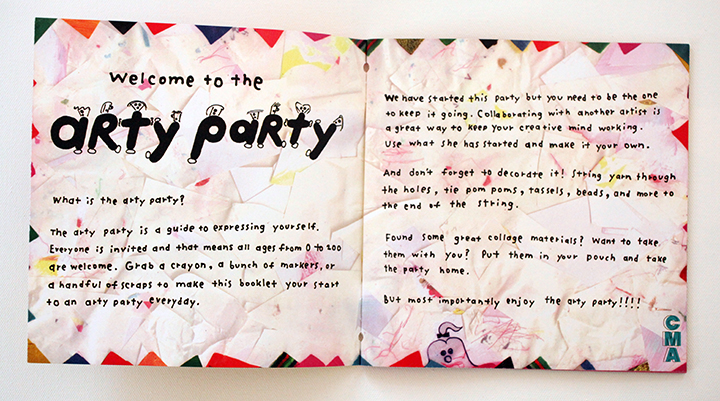 Welcome to the
arty party
What is the arty party?
The arty party is a guide to expressing yourself.
Everyone is invited and that means all ages from 0 to 200
are welcome. Grab a crayon, a bunch of markers, or
a handful of scraps to make this booklet your start
to an arty party everyday.
We have started this party but you need to be the one
to keep it going. Collaborating with another artist is
a great way to keep your creative mind working.
Use what she has started and make it your own.
And don't forget to decorate it! String yarn through
the holes, tie pom poms, tassels, beads, and more to
the end of the string.
Found some great collage materials? Want to take
them with you? Put them in your pouch and take
the party home.
But most importantly enjoy the arty party!!!!
CMA